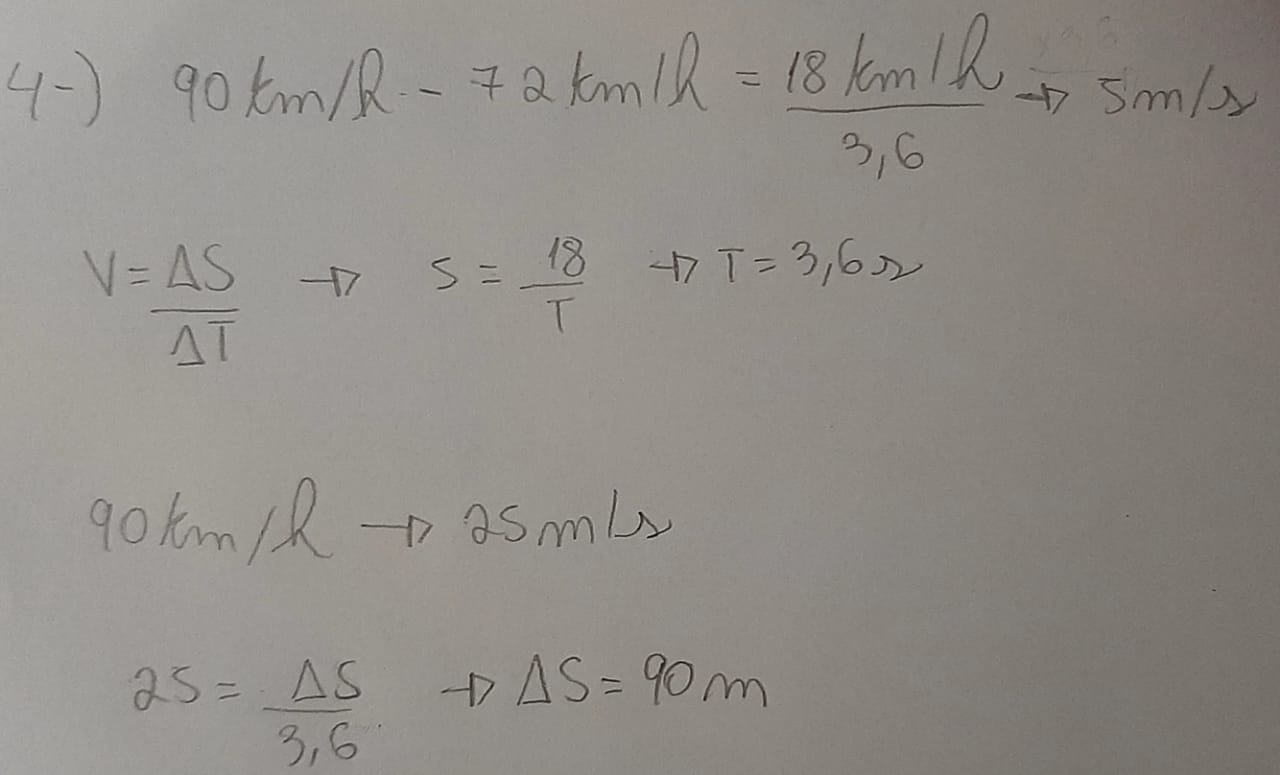 4-) 90 km/h - 72 km/h = 18 km/h / 3,6 → 5 m/s
V = ΔS / ΔT → 5 = 18 / T → T = 3,6 s
90 km/h → 25 m/s
25 = ΔS / 3,6 → ΔS = 90 m